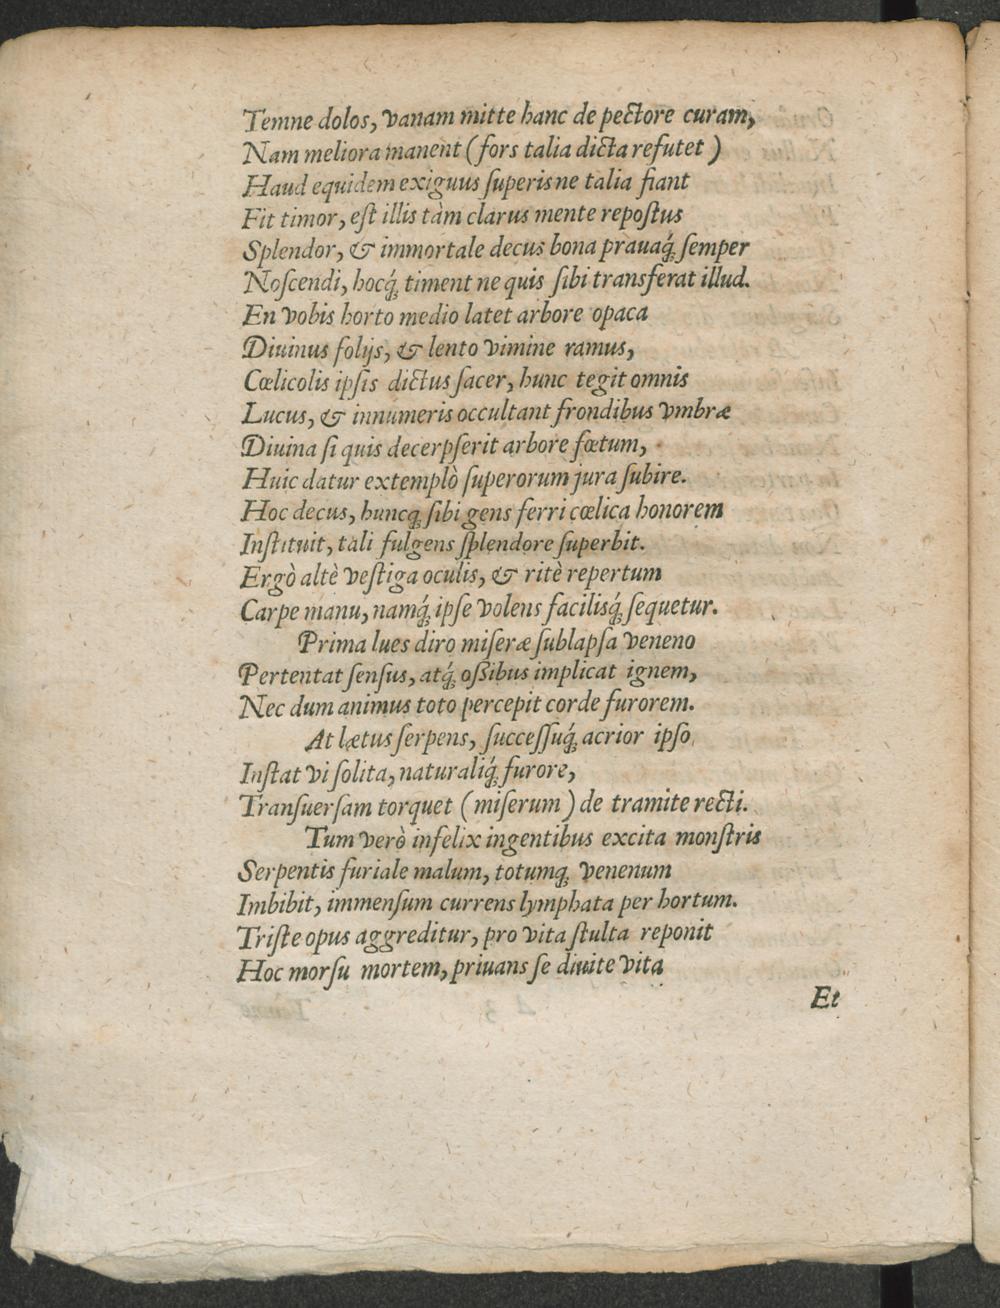 Temne dolos, vanam mitte hanc de pectore curam,
Nam meliora manent (fors talia dicta refutet )
Haud equidem exiguus superisne talia fiant
Fit timor, est illis tàm clarus mente repostus
Splendor, & immortale decus bona prauaq́; semper
Noscendi, hocq́; timent ne quis sibi transferat illud.
En vobis horto medio latet arbore opaca
Diuinus folijs, & lento vimine ramus,
Cœlicolis ipsis dictus sacer, hunc tegit omnis
Lucus, & innumeris occultant frondibus vmbræ
Diuina si quis decerpserit arbore fœtum,
Huic datur extemplò superorum jura subire.
Hoc decus, huncq; sibi gens ferri cœlica honorem
Instituit, tali fulgens splendore superbit.
Ergò altè vestiga oculis, & ritè repertum
Carpe manu, namq́; ipse volens facilisq́; sequetur.
Prima lues diro miseræ sublapsa veneno
Pertentat sensus, atq́; ossibus implicat ignem,
Nec dum animus toto percepit corde furorem.
At lætus serpens, successuq́; acrior ipso
Instat vi solita, naturaliq́; furore,
Transuersam torquet (miserum) de tramite recti.
Tum verò infelix ingentibus excita monstris
Serpentis furiale malum, totumq; venenum
Imbibit, immensum currens lymphata per hortum.
Triste opus aggreditur, pro vita stulta reponit
Hoc morsu mortem, priuans se diuite vita
Et